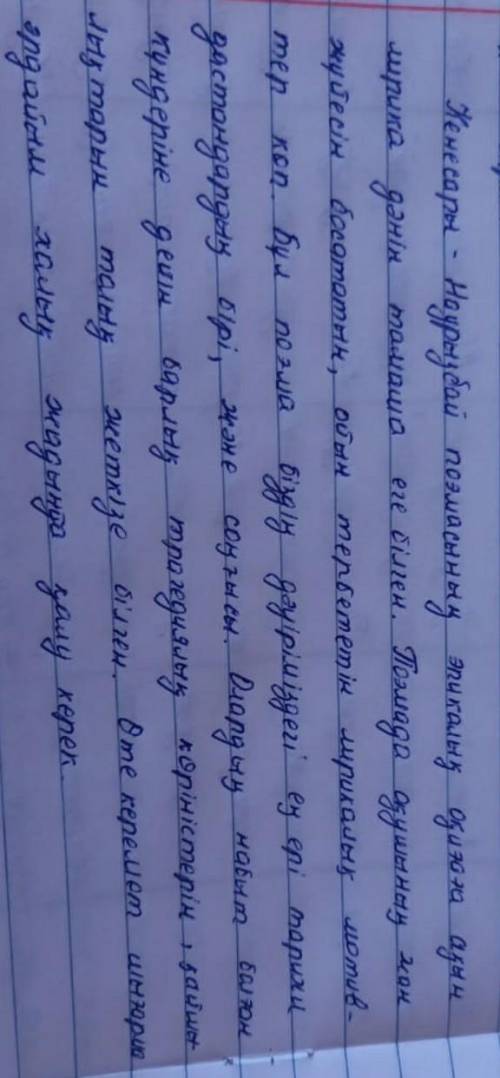 Кенесары - Наурызбай поэмасының эпикалық оқиғаға ақын
лирика дәнін тамаша еге білген. Поэмада оқушының жан
жүйесін босататын, ойын тербететін лирикалық мотив-
тер көп. Бұл поэма біздің дәуіріміздегі ең ері тарихи
дастандардың бірі, және соңғысы. Олардың набыт болған
күндеріне дейін барлық трагедиялық көріністерін, қайшы-
лықтарын талық жеткізе білген. Өте керемет шығарма
әрдайым халық жадында қалу керек.